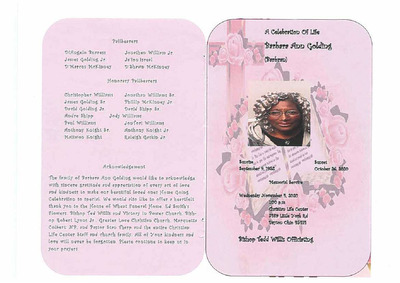 Pallbearers
D'Angelo Barrett Jonathon William Jr
James Golding Jr Ja'len Israel
D'Marcus McKinney D'Shawn McKinney
Honorary Pallbearers
Christopher William Jonathon Williams Sr
James Golding Sr Phillip McKinney Jr
David Golding Jr David Shipp Sr
Andre Shipp Jody William
Paul Williams
Anthony Knight Sr Anthony Knight Jr
Raleigh Gaskin Jr
Acknowledgement
The family of Barbara Ann Golding would like to acknowledge
with sincere gratitude and appreciation of every act of love
and kindness to make our beautiful loved one! Home Going
Celebration so special. We would also like to offer a heartfelt
thank you to the House of Wheat Funeral Home, Ed Smith's
Flowers, Bishop Ted Willis and Victory in Power Church, Bish-
op Robert Lyons Jr. Greater Love Christian Church, Marquetta
Colbert, N.P. and Pastor Stan Clark and the entire Christian
Life Center Staff and church family. All of Your kindness and
love will never be forgotten. Please continue to keep us in
your prayers
A Celebration Of Life
Barbara Ann Golding
Sunrise Sunset
October 26, 2020
Memorial Service
Wednesday November
Christian Life Center
3489 Little York Rd
Dayton Ohio
Bishop Tedd Willis Officiating